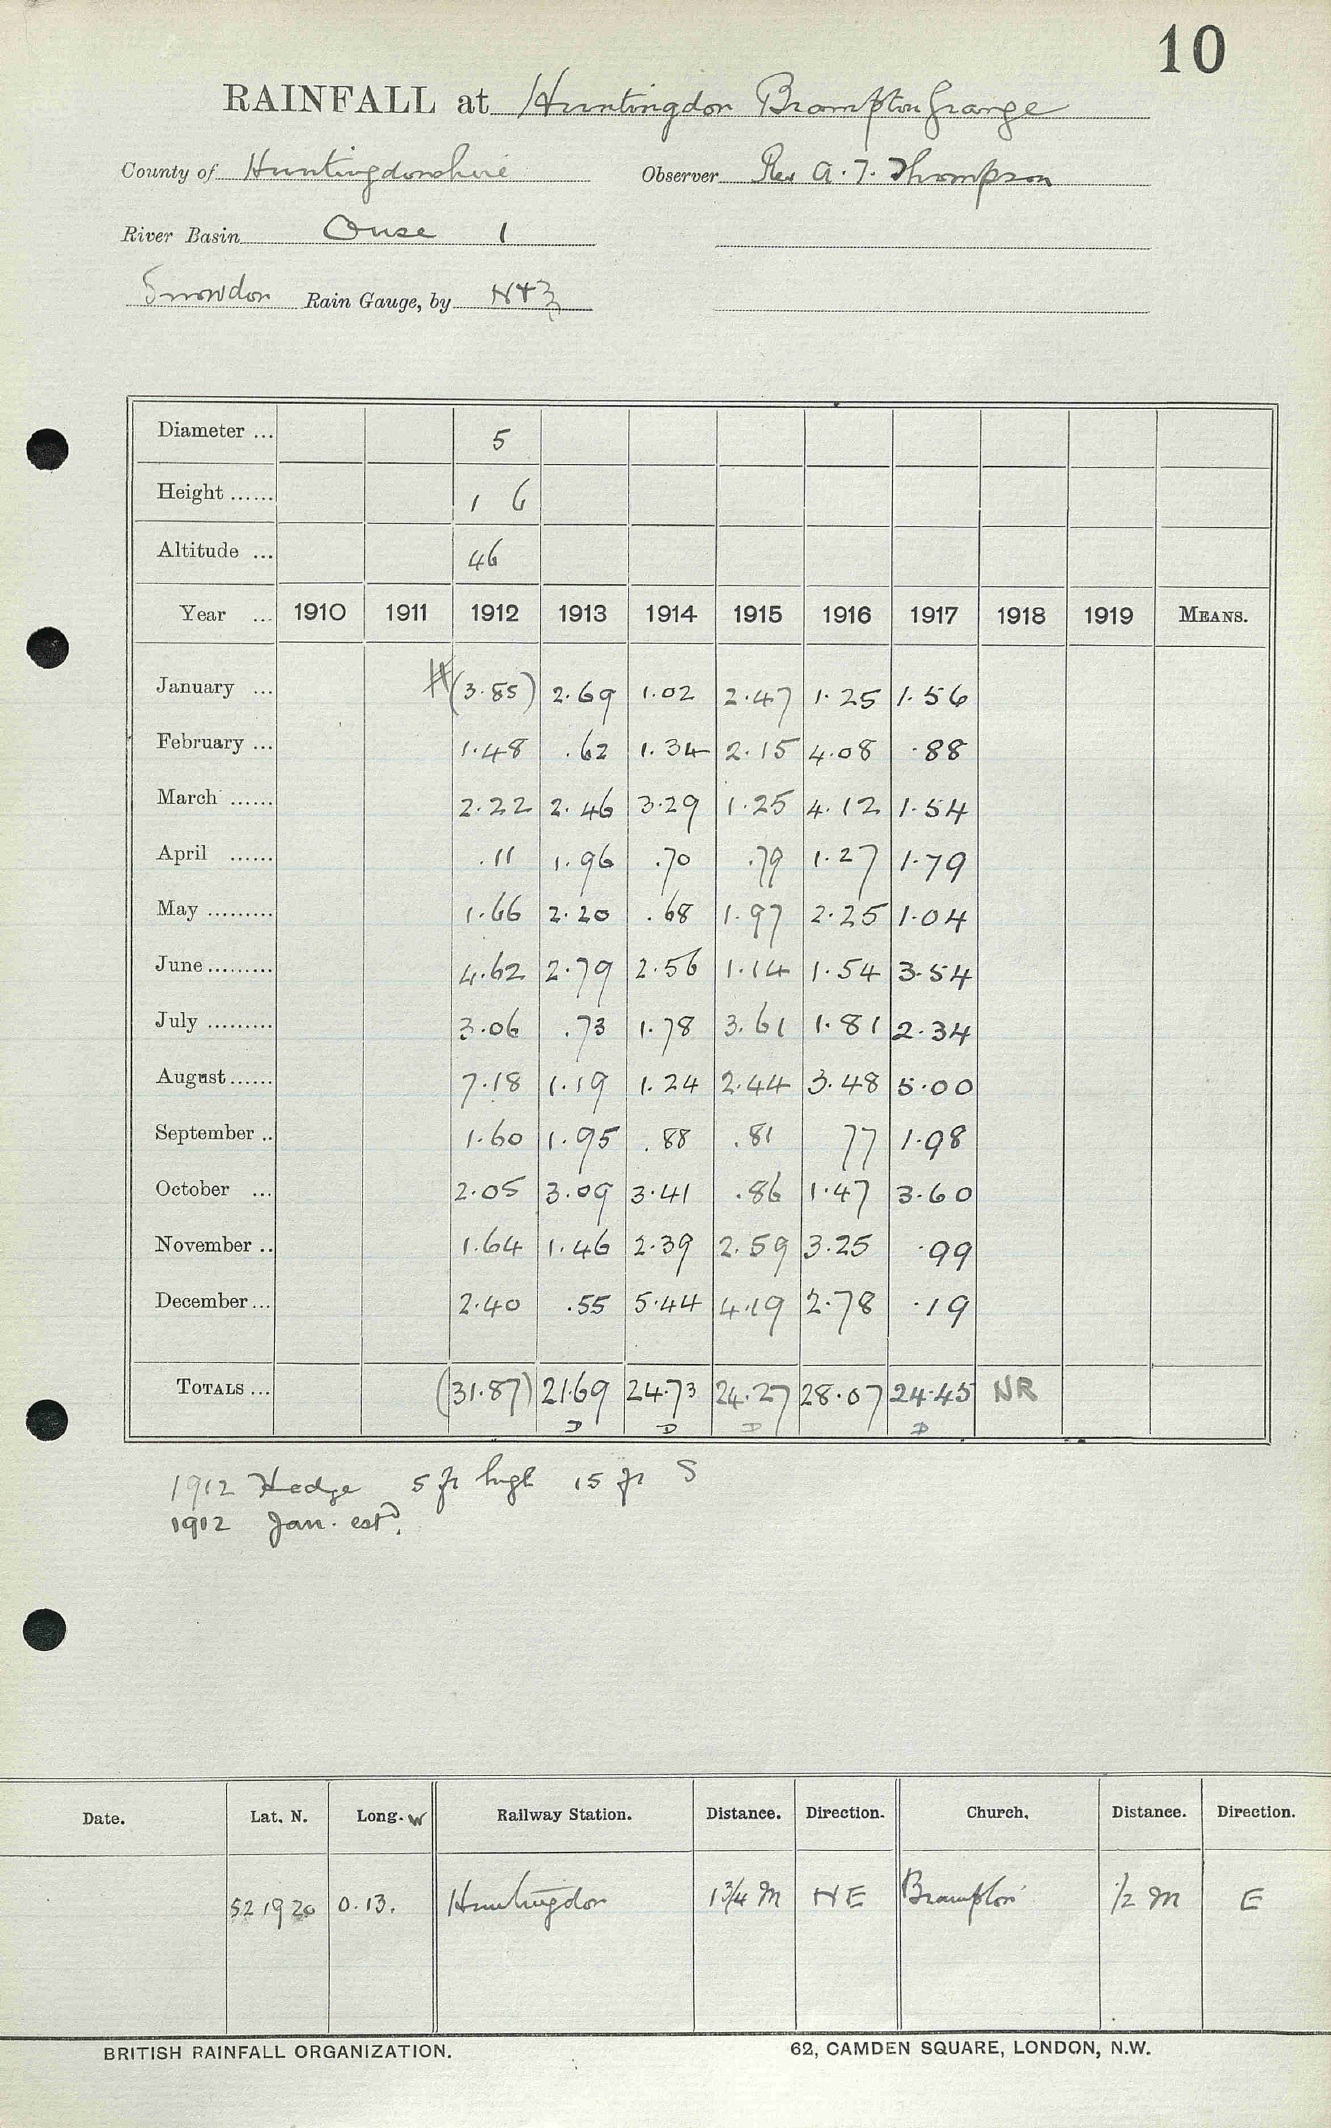 10
RAINFALL at Huntingdon Brampton Grange
County of Huntingdonshire Observer Rev A. T. Thompson
River Basin Ouse 1
Snowdon Rain Gauge, by N+Z
Diameter ... 5
Height ...... 1 6
Altitude ... 46
Year ... 1910 1911 1912 1913 1914 1915 1916 1917 1918 1919 MEANS.
January ... #(3.85) 2.69 1.02 2.47 1.25 1.56
February ... 1.48 .62 1.34 2.15 4.08 .88
March ...... 2.22 2.46 3.29 1.25 4.12 1.54
April ...... .11 1.96 .70 .79 1.27 1.79
May ......... 1.66 2.20 .68 1.97 2.25 1.04
June ......... 4.62 2.79 2.56 1.14 1.54 3.54
July ......... 3.06 .73 1.78 3.61 1.81 2.34
August ...... 7.18 1.19 1.24 2.44 3.48 5.00
September .. 1.60 1.95 .88 .81 77 1.98
October ... 2.05 3.09 3.41 .86 1.47 3.60
November .. 1.64 1.46 2.39 2.59 3.25 .99
December ... 2.40 .55 5.44 4.19 2.78 .19
TOTALS ... (31.87) 21.69 24.73 24.27 28.07 24.45 NR
D D D D
1912 Hedge 5 ft high 15 ft S
1912 Jan. estd.
Date. Lat. N. Long. W Railway Station. Distance. Direction. Church. Distance. Direction.
52 19 20 0.13. Huntingdon 1¾ M NE Brampton ½ M E
BRITISH RAINFALL ORGANIZATION. 62, CAMDEN SQUARE, LONDON, N.W.